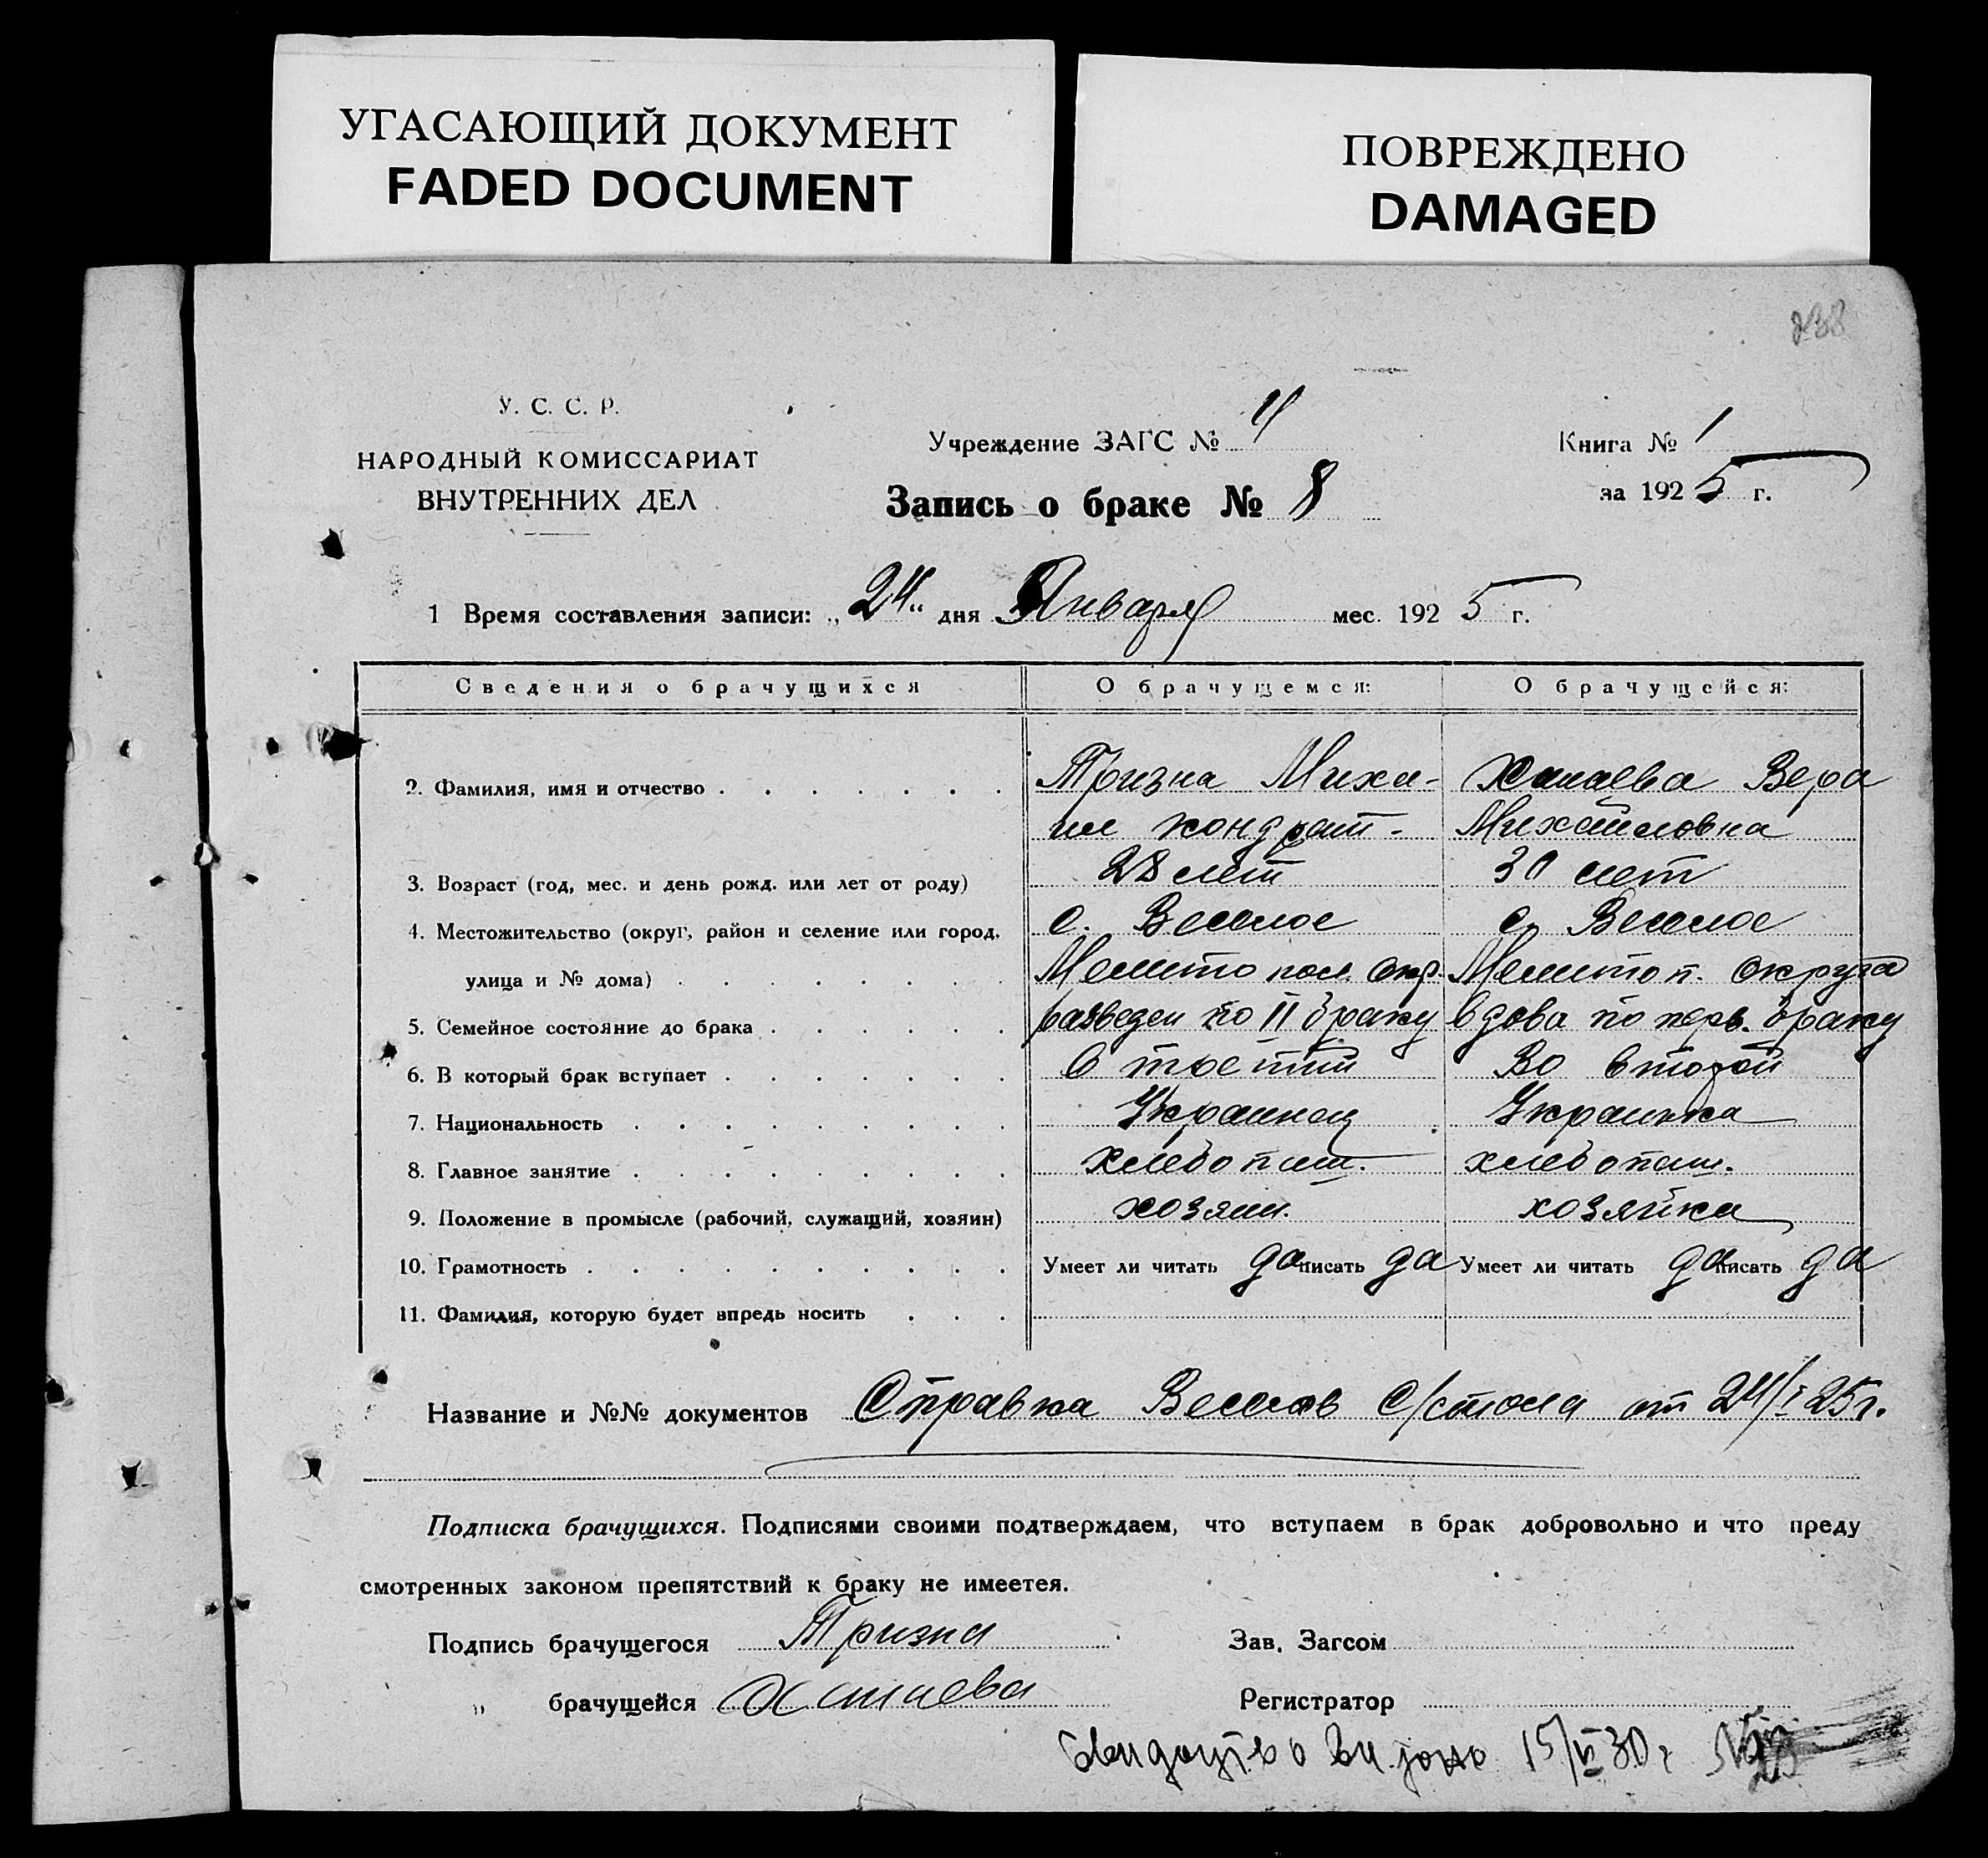 УГАСАЮЩИЙ ДОКУМЕНТ
FADED DOCUMENT
ПОВРЕЖДЕНО
DAMAGED
238
У. С. С. Р.
НАРОДНЫЙ КОМИССАРИАТ
ВНУТРЕННИХ ДЕЛ
Учреждение ЗАГС № 4
Запись о браке № 8
Книга № 1
за 1925 г.
1 Время составления записи: „24" дня Января мес. 1925 г.
Сведения о брачущихся О брачущемся: О брачущейся:
2. Фамилия, имя и отчество Тризна Миха- Вера
ил Кондрат- Михайловна
3. Возраст (год, мес. и день рожд. или лет от роду) 28 лет 30 лет
4. Местожительство (округ, район и селение или город, с. Веселое с. Веселое
улица и № дома) Мелитопол. окр. Мелитоп. округа
5. Семейное состояние до брака разведен по II браку вдова по перв. браку
6. В который брак вступает в третий Во второй
7. Национальность Украинец Украинка
8. Главное занятие хлебопаш. хлебопаш.
9. Положение в промысле (рабочий, служащий, хозяин) хозяин. хозяйка
10. Грамотность Умеет ли читать да писать да Умеет ли читать да писать да
11. Фамилия, которую будет впредь носить
Название и №№ документов Справка Веселов с/стола от 24/I 25 г.
Подписка брачущихся. Подписями своими подтверждаем, что вступаем в брак добровольно и что преду
смотренных законом препятствий к браку не имеетея.
Подпись брачущегося Тризна Зав. Загсом
„ брачущейся Регистратор
15/VI 30 г